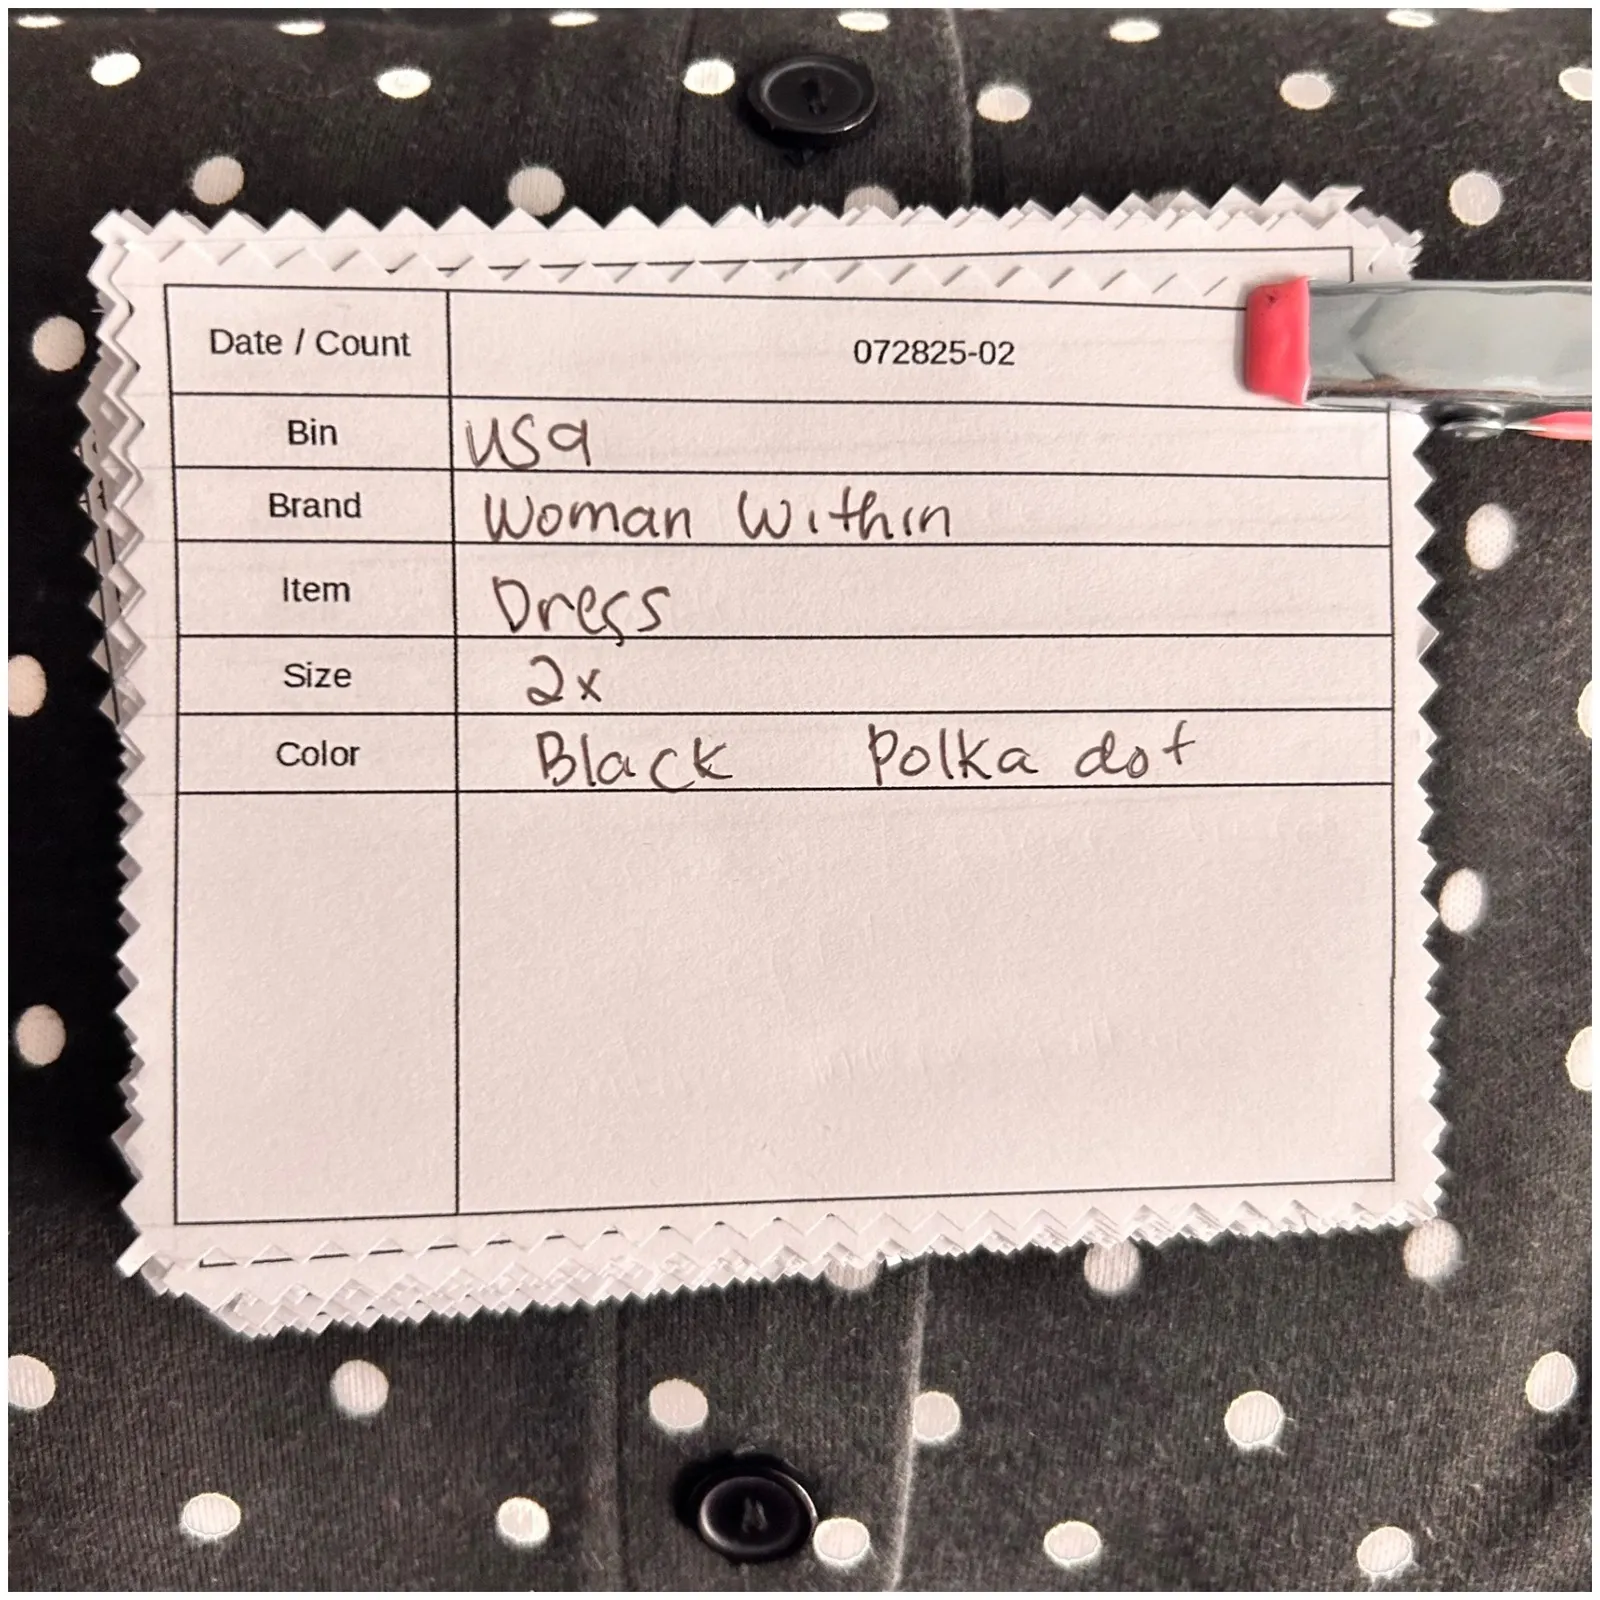 Date / Count 072825-02
Bin usa
Brand Woman Within
Item Dress
Size 2x
Color Black Polka dot